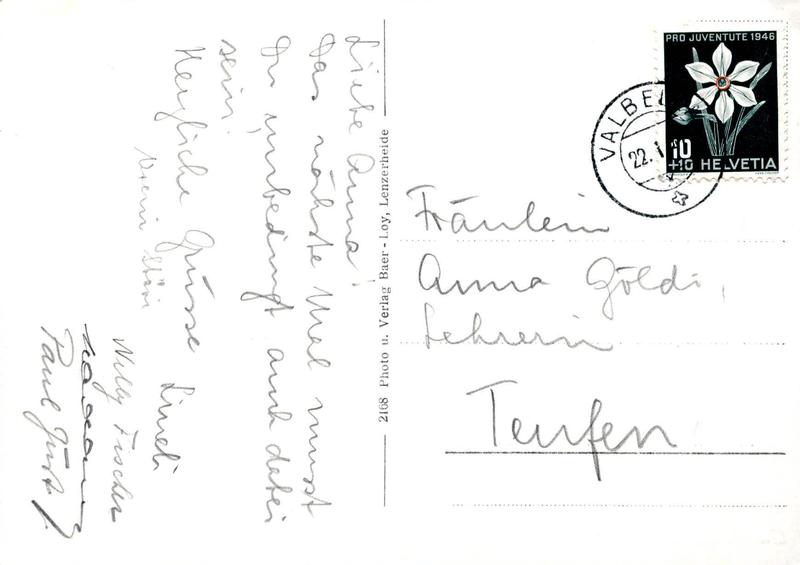 Liebe Anna!
Das nächste Mal musst
Du unbedingt auch dabei
sein.
Herzliche Grüsse
Nelly Fischer
Paul
2168 Photo u. Verlag Baer-Loy, Lenzerheide
PRO JUVENTUTE 1946
10
+10 HELVETIA
VALBE
22. I
Fräulein
Anna Göldi,
Lehrerin
Teufen